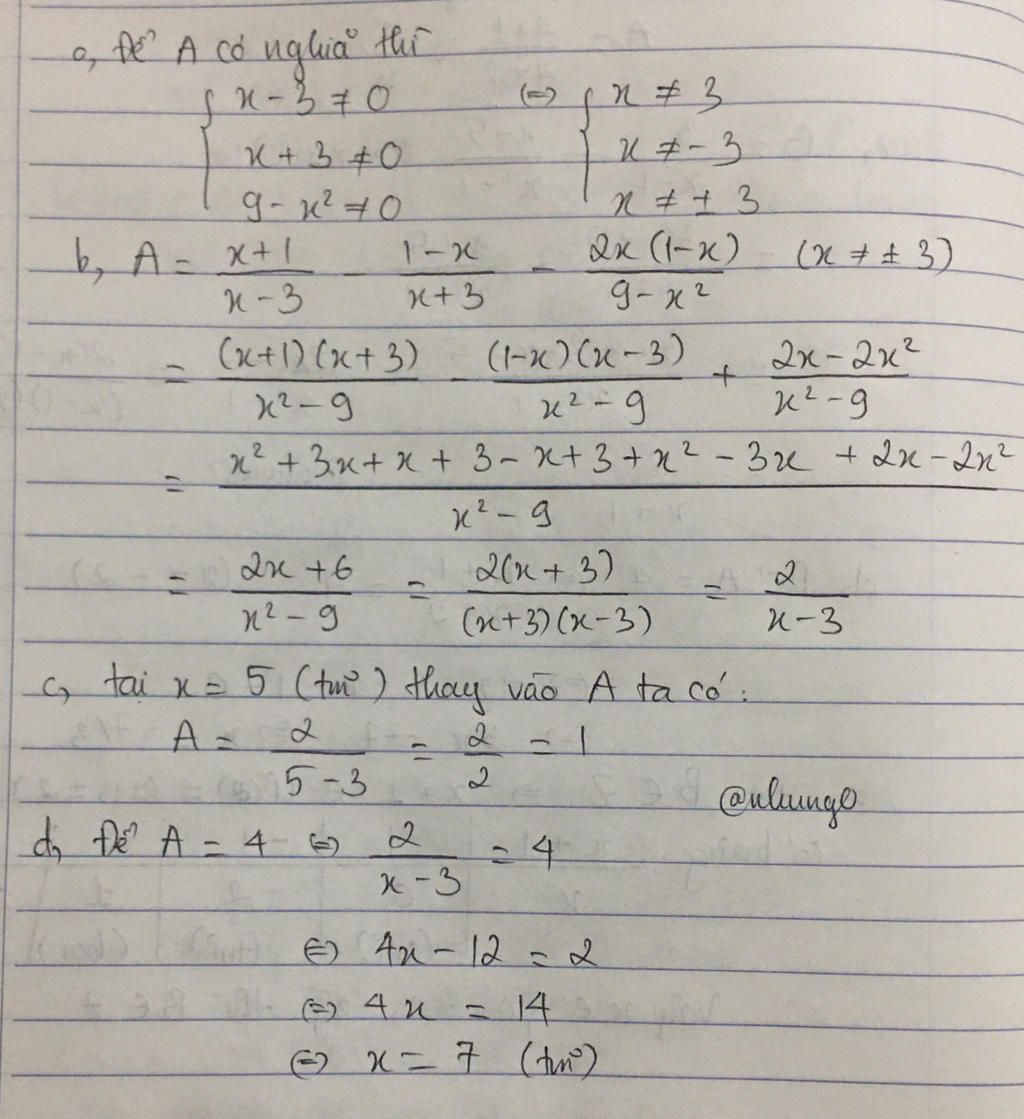 a, Để A có nghĩa thì
{ x - 3 ≠ 0 (=) { x ≠ 3
x + 3 ≠ 0 x ≠ - 3
9 - x² ≠ 0 x ≠ ± 3
b, A = (x+1)/(x-3) - (1-x)/(x+3) - (2x(1-x))/(9-x²) (x ≠ ± 3)
= ((x+1)(x+3))/(x²-9) - ((1-x)(x-3))/(x²-9) + (2x-2x²)/(x²-9)
= (x²+3x+x+3-x+3+x²-3x+2x-2x²)/(x²-9)
= (2x+6)/(x²-9) = (2(x+3))/((x+3)(x-3)) = 2/(x-3)
c, tại x = 5 (tm) thay vào A ta có:
A = 2/(5-3) = 2/2 = 1
@nhung0
d, Để A = 4 (=) 2/(x-3) = 4
(=) 4x - 12 = 2
(=) 4x = 14
(=) x = 7 (tm)